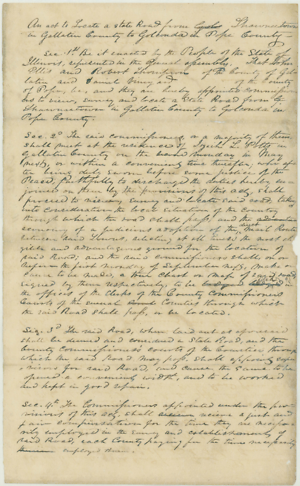 An act to Locate a State Road from Shawneetown
in Gallatin County to Golconda in Pope County
Sec. 1st Be it enacted by the People of the State of
Illinois, represented in the General Assembly, That John
Ellis and Robert of the County of Gal-
latin and of the County
of Pope, be, and they are hereby appointed commission-
ers to view, survey and locate a State Road from
Shawneetown in Gallatin County to Golconda in
Pope County.
Sec. 2d The said commissioners or a majority of them
shall meet at the residence of L. Potts in
Gallatin County on the second monday in May
next, or within months thereafter, and af-
ter being duly sworn before some justice of the
Peace, faithfully to discharge the duties herein en-
joined on them by the provisions of this act, shall
proceed to view, survey and locate said road, taking
into consideration the local situation of the country
through which the road shall pass, and the
economy of a judicious adoption of the Route
between said Towns, selecting at all times the most el-
igible and advantageous ground for the location of
said Road; and the said commissioners shall on or
before the first monday of September next, make or
cause to be made a true Chart or Map of said road
signed by them respectively, to be in
the offices of the Clerks of the County Commissioners
Courts of the several Counties through which
the said Road shall pass, or be located.
Sec. 3d The said Road, when laid out as aforesaid
shall be deemed and considered a State Road, and the
County Commissioners courts of the Counties through
which the said Road may pass, shall appoint super-
visors for said Road, and cause the same to be
opened a necessary width, and to be worked
and kept in good repair.
Sec. 4th The Commissioners appointed under the pro-
visions of this act, shall receive a just and
fair compensation for the time they are neces-
sarily employed in the survey and establishment of
said Road, each County paying for the time necessarily
employed therein.